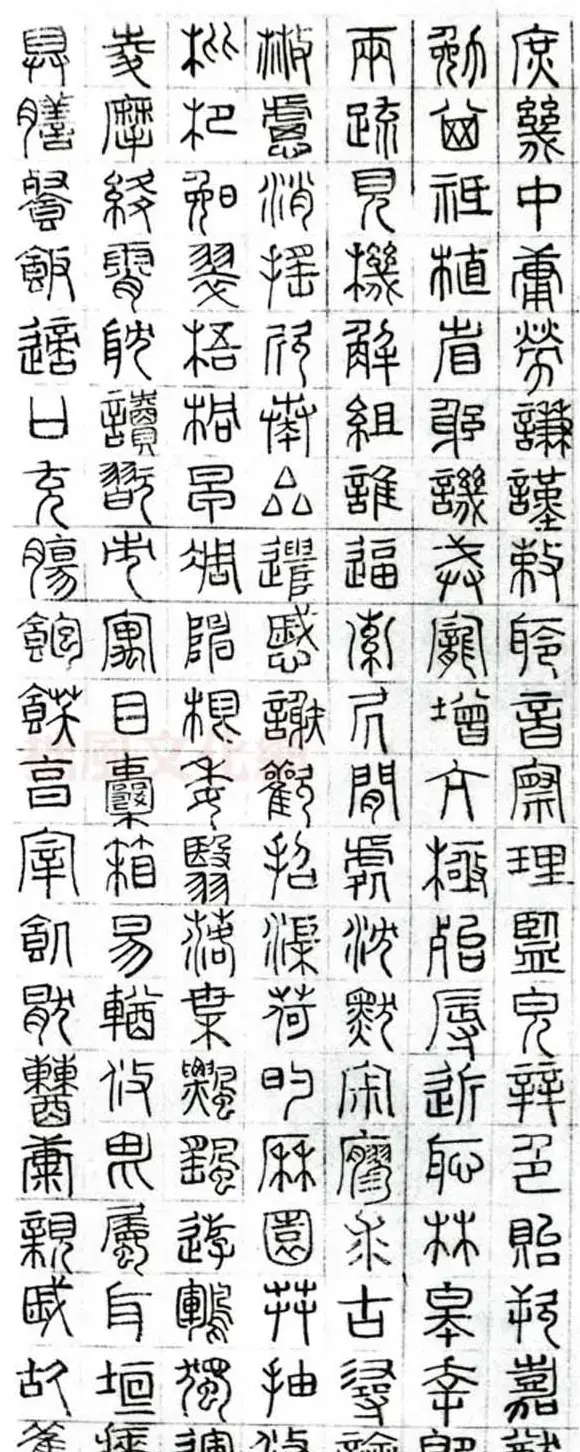 庶幾中庸勞謙謹敕聆音察理鑒貌辨色貽厥嘉猷
勉其祗植省躬譏誡寵增抗極殆辱近恥林皋幸即
兩疏見機解組誰逼索居閒處沈默寂寥求古尋論
散慮逍遙欣奏累遣慼謝歡招渠荷的歷園莽抽條
枇杷晚翠梧桐早凋陳根委翳落葉飄颻遊鵾獨運
凌摩絳霄耽讀翫市寓目囊箱易輶攸畏屬耳垣牆
具膳餐飯適口充腸飽飫烹宰飢厭糟糠親戚故舊